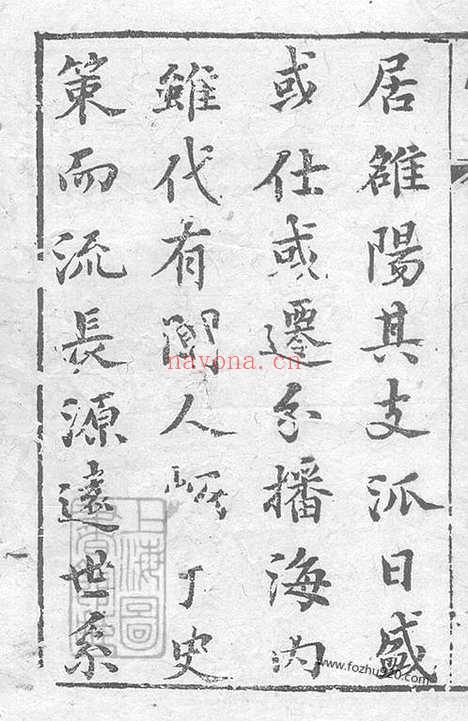 居雒陽其支派日盛
或仕或遷分播海内
雖代有聞人于史
策而流長源遠世系
nayona.cn
上海圖
www.fozhu920.com